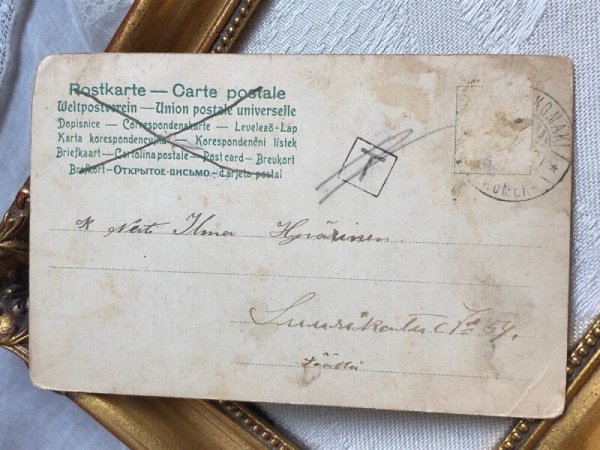 Postkarte — Carte postale
Weltpostverein — Union postale universelle
Dopisnice — Correspondenzkarte — Levelező-Lap
Karta korespondencyjna — Korespondenční lístek
Briefkaart — Cartolina postale — Post card — Brevkort
Brefkort — ОТКРЫТОЕ-ПИСЬМО — Carjeta postal
T
Neiti Ilma Hyvärinen
Suurikatu No 54.
Täällä